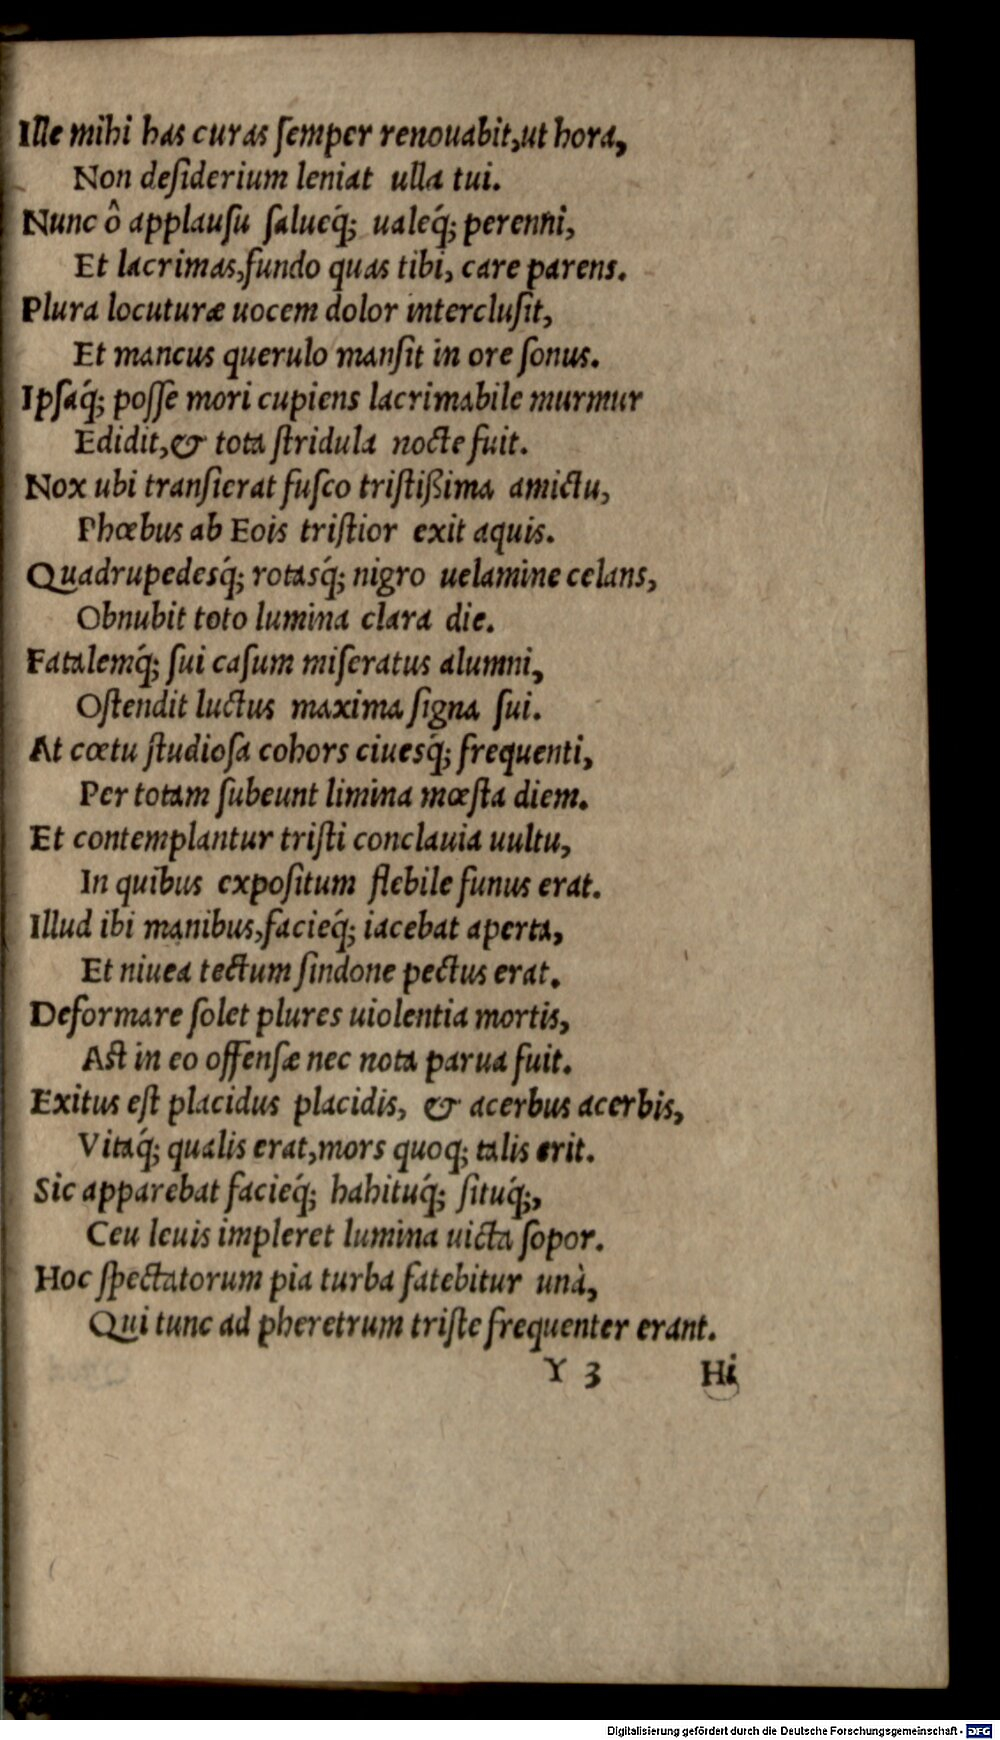 Ille mihi has curas ſemper renouabit,ut hora,
Non deſiderium leniat ulla tui.
Nunc ô applauſu ſalueq́; ualeq́; perenni,
Et lacrimas,fundo quas tibi, care parens.
Plura locuturæ uocem dolor intercluſit,
Et mancus querulo manſit in ore ſonus.
Ipſaq́; poſſe mori cupiens lacrimabile murmur
Edidit,& tota ſtridula nocte fuit.
Nox ubi tranſierat fuſco triſtißima amictu,
Phœbus ab Eois triſtior exit aquis.
Quadrupedesq́; rotasq́; nigro uelamine celans,
Obnubit toto lumina clara die.
Fatalemq́; ſui caſum miſeratus alumni,
Oſtendit luctus maxima ſigna ſui.
At cœtu ſtudioſa cohors ciuesq́; frequenti,
Per totam ſubeunt limina mœſta diem.
Et contemplantur triſti conclauia uultu,
In quibus expoſitum flebile funus erat.
Illud ibi manibus,facieq́; iacebat aperta,
Et niuea tectum ſindone pectus erat.
Deformare ſolet plures uiolentia mortis,
Aſt in eo offenſæ nec nota parua fuit.
Exitus eſt placidus placidis, & acerbus acerbis,
Vitaq́; qualis erat,mors quoq; talis erit.
Sic apparebat facieq́; habituq́; ſituq́;,
Ceu leuis impleret lumina uicta ſopor.
Hoc ſpectatorum pia turba fatebitur unà,
Qui tunc ad pheretrum triſte frequenter erant.
Y 3 Hi
Digitalisierung gefördert durch die Deutsche Forschungsgemeinschaft - DFG